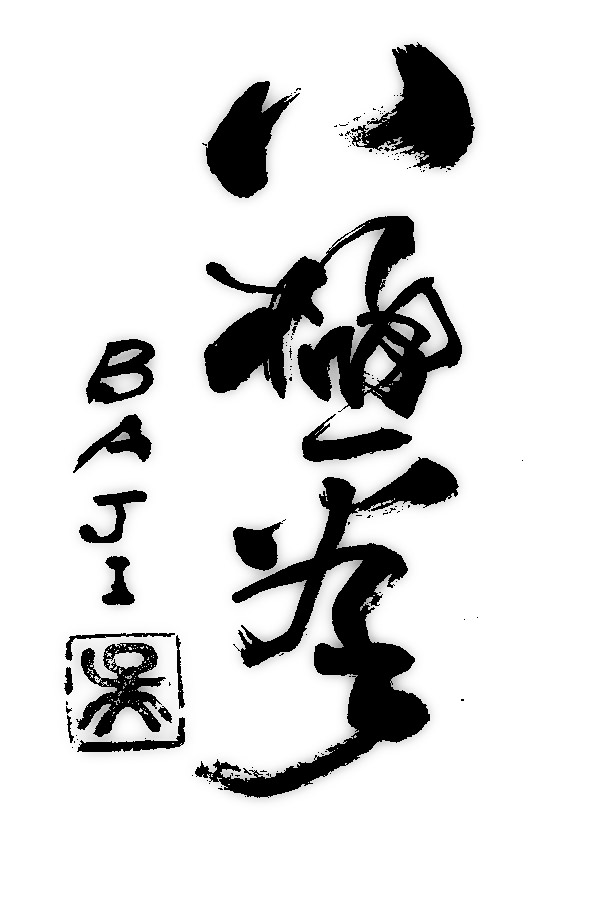 八極拳
BAJI
吴